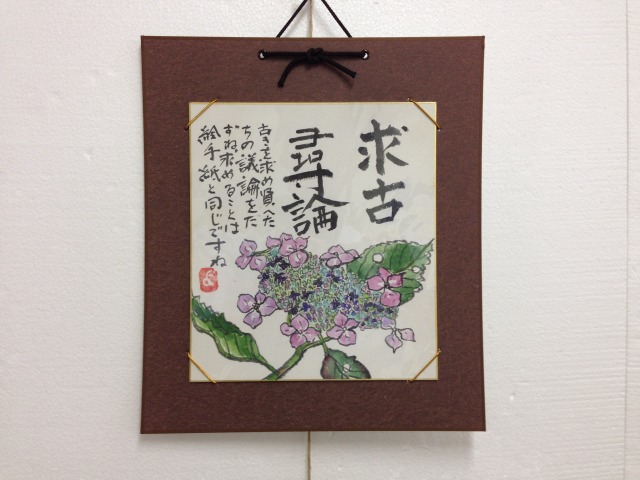 求古
尋論
古きを求め賢人た
ちの議論をた
ずね求めることは
絵手紙と同じですね